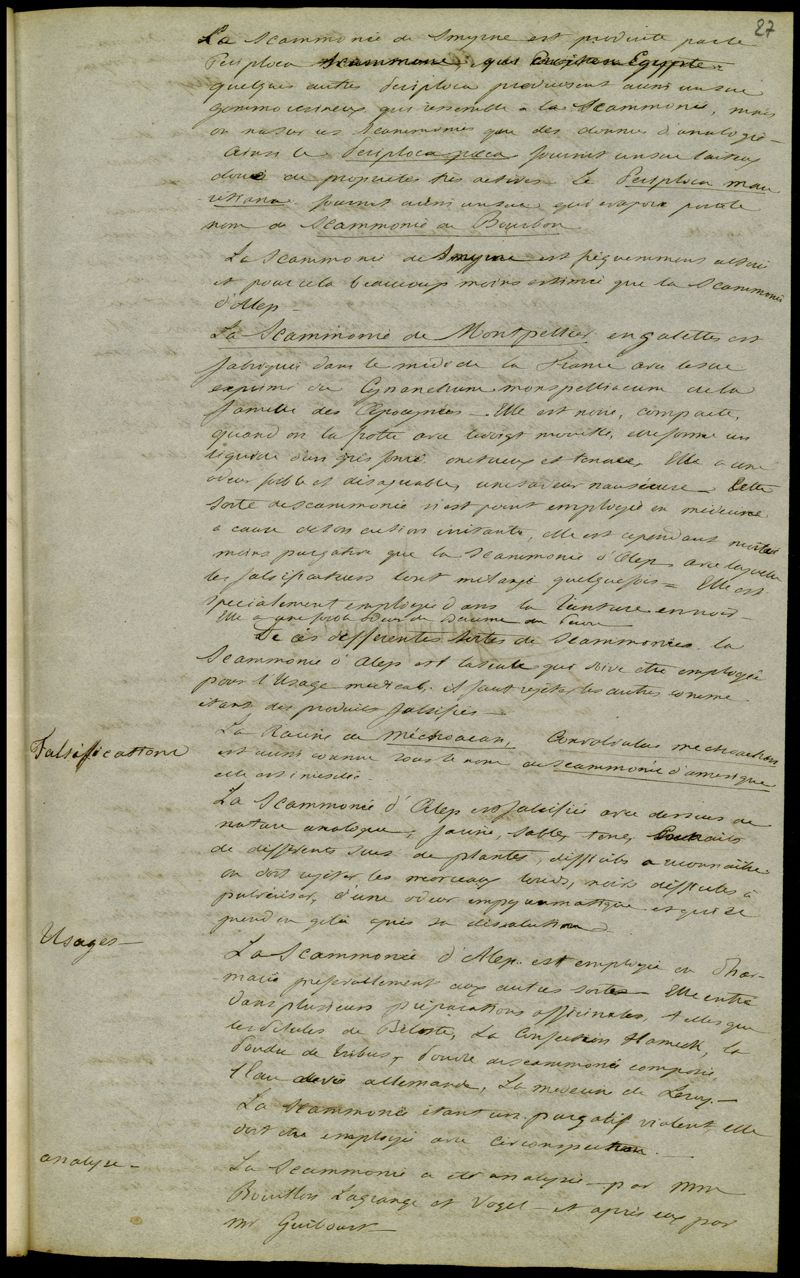 27
La Scammonée de Smyrne est produite par le
Periploca Scammone, qui croit en Egypte =
quelques autres Periploca produisent aussi un suc
gommo résineux qui ressemble a la Scammonée, mais
on n'a sur ces Scammonées que des données d'analogie —
ainsi le Periploca graeca fournit un suc laiteux
doué de propriétés très actives. Le Periploca mau
ritiana fournit aussi un suc qui évaporé porte le
nom de Scammonée de Bourbon
La Scammonée de Smyrne est fréquemment altérée
et pour cela beaucoup moins estimée que la Scammonée
d'Alep —
La Scammonée de Montpellier, en galettes est
fabriquée dans le midi de la France avec le suc
exprimé du Cynanchum monspelliacum de la
famille des Apocynées — Elle est noire, compacte,
quand on la frotte avec le doigt mouillé, elle forme un
liquide d'un gris foncé onctueux et tenace, Elle a une
odeur faible et désagréable, une saveur nauséeuse — Cette
sorte de scammonée n'est point employée en médecine
a cause de son action irritante, elle est cependant
moins purgative que la Scammonée d'Alep avec laquelle
les falsificateurs l'ont mélangé quelquefois = Elle est
specialement employée dans la teinture en noir —
Elle a une forte odeur de Baume du Perou
De ces différentes sortes de Scammonées la
Scammonée d'Alep est la seule qui doive etre employée
pour l'Usage medical. il faut rejeter les autres comme
étant des produits falsifiés —
La Racine de méchoacan, Convolvulus mechoacana
est aussi connue sous le nom de Scammonée d'amerique
elle est inusitée.
Falsifications
La Scammonée d'Alep est falsifiée avec des sucs de
nature analogue, farine, sable, terre,
de différents sucs de plantes, difficile a reconnaitre
on doit rejeter les morceaux lourds, noirs difficiles à
pulvériser, d'une odeur empyreumatique et qui se
prend en gelée après sa dissolution
Usages —
La Scammonée d'Alep est employée en Phar-
macie préférablement aux autres sortes — Elle entre
dans plusieurs préparations officinales, telles que
les Pilules de Beloste, La Confection Hamech, la
Poudre de tribus, Poudre de scammonée composée,
l'Eau de vie allemande, La medecine de Leroy —
La Scammonée étant un purgatif violent, elle
doit etre employée avec circonspection —
analyse —
La Scammonée a été analysée — par MM
Bouillon Lagrange et Vogel — et après eux par
Mr Guibourt —